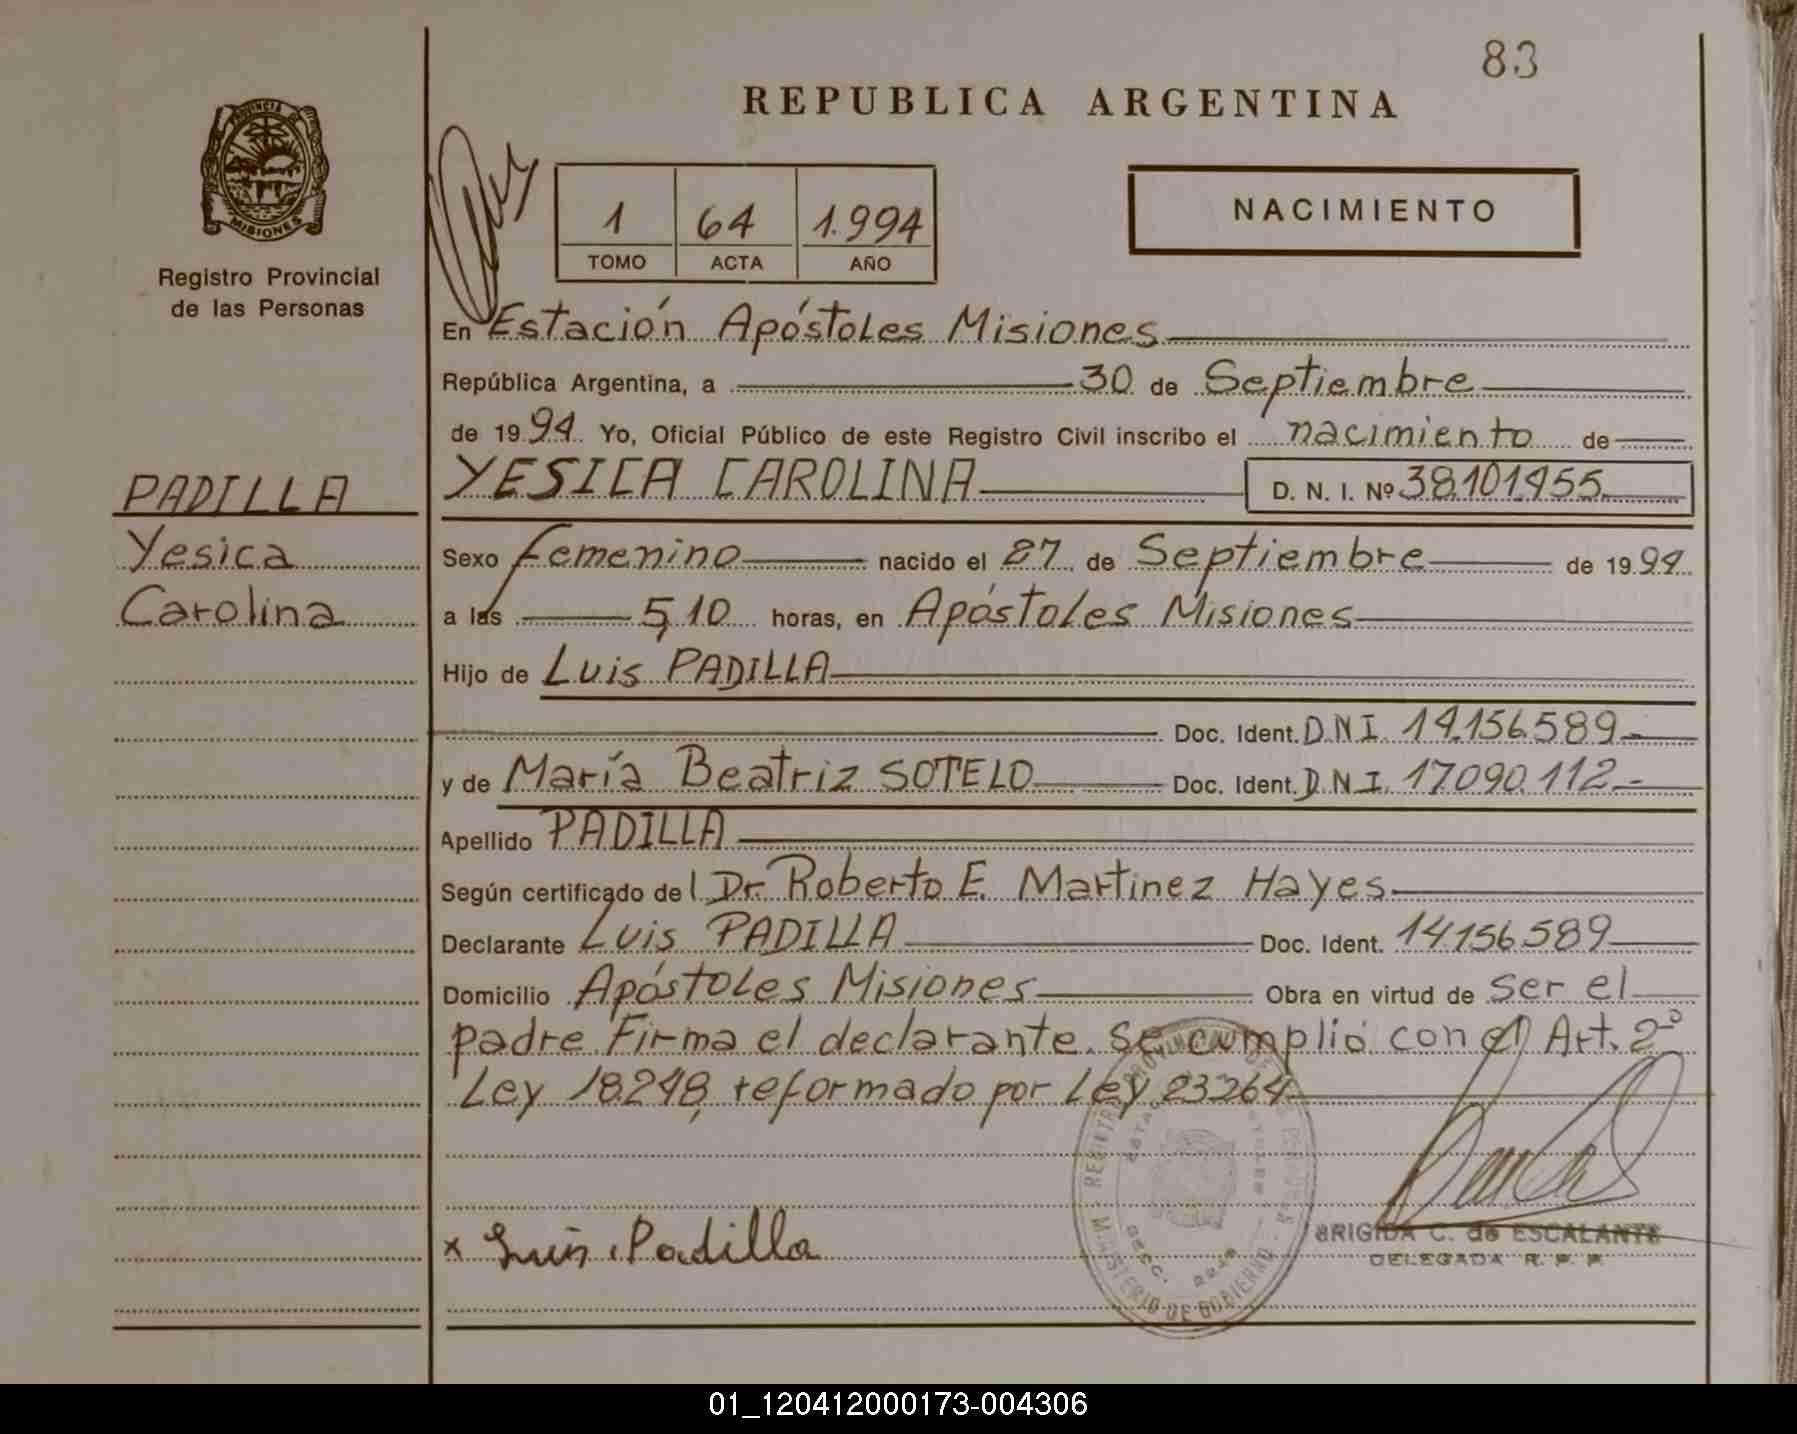 83
REPUBLICA ARGENTINA
PROVINCIA
MISIONES
Registro Provincial
de las Personas
1 64 1.994
TOMO ACTA AÑO
NACIMIENTO
En Estación Apóstoles Misiones
República Argentina, a 30 de Septiembre
de 1994 Yo, Oficial Público de este Registro Civil inscribo el nacimiento de
PADILLA
YESICA CAROLINA D. N. I. Nº 38.101.455
Yesica
Sexo femenino nacido el 27 de Septiembre de 1994
Carolina
a las 5,10 horas, en Apóstoles Misiones
Hijo de Luis PADILLA
Doc. Ident. D.N.I. 14.156.589.-
y de María Beatriz SOTELO Doc. Ident. D.N.I. 17.090.112.-
Apellido PADILLA
Según certificado del Dr. Roberto E. Martinez Hayes
Declarante Luis PADILLA Doc. Ident. 14.156.589
Domicilio Apóstoles Misiones Obra en virtud de ser el
padre. Firma el declarante. Se cumplió con el Art. 2º
Ley 18.248, reformado por Ley 23264
x Luis Padilla
BRIGIDA C. de ESCALANTE
DELEGADA R. P. P.
MINISTERIO DE GOBIERNO
01_120412000173-004306